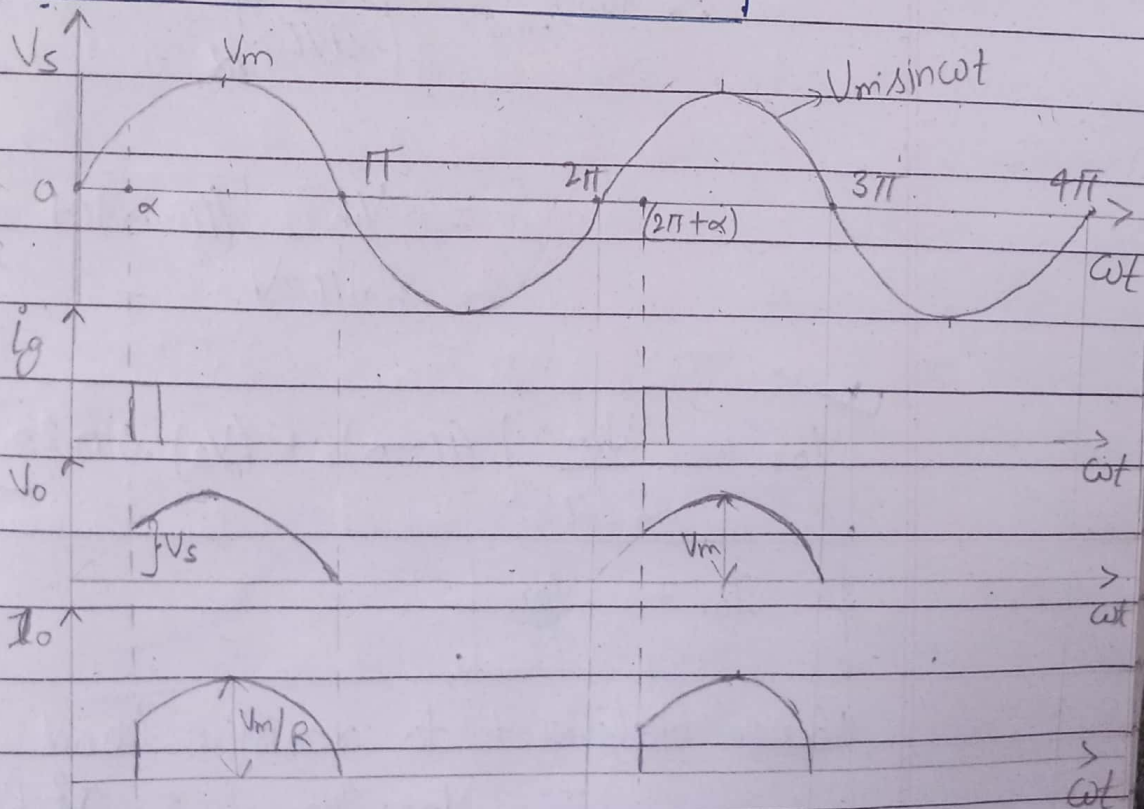 Vs
Vm
Vm sinωt
0
α
π
2π
(2π+α)
3π
4π
ωt
ig
ωt
Vo
Vs
Vm
ωt
Io
Vm/R
ωt